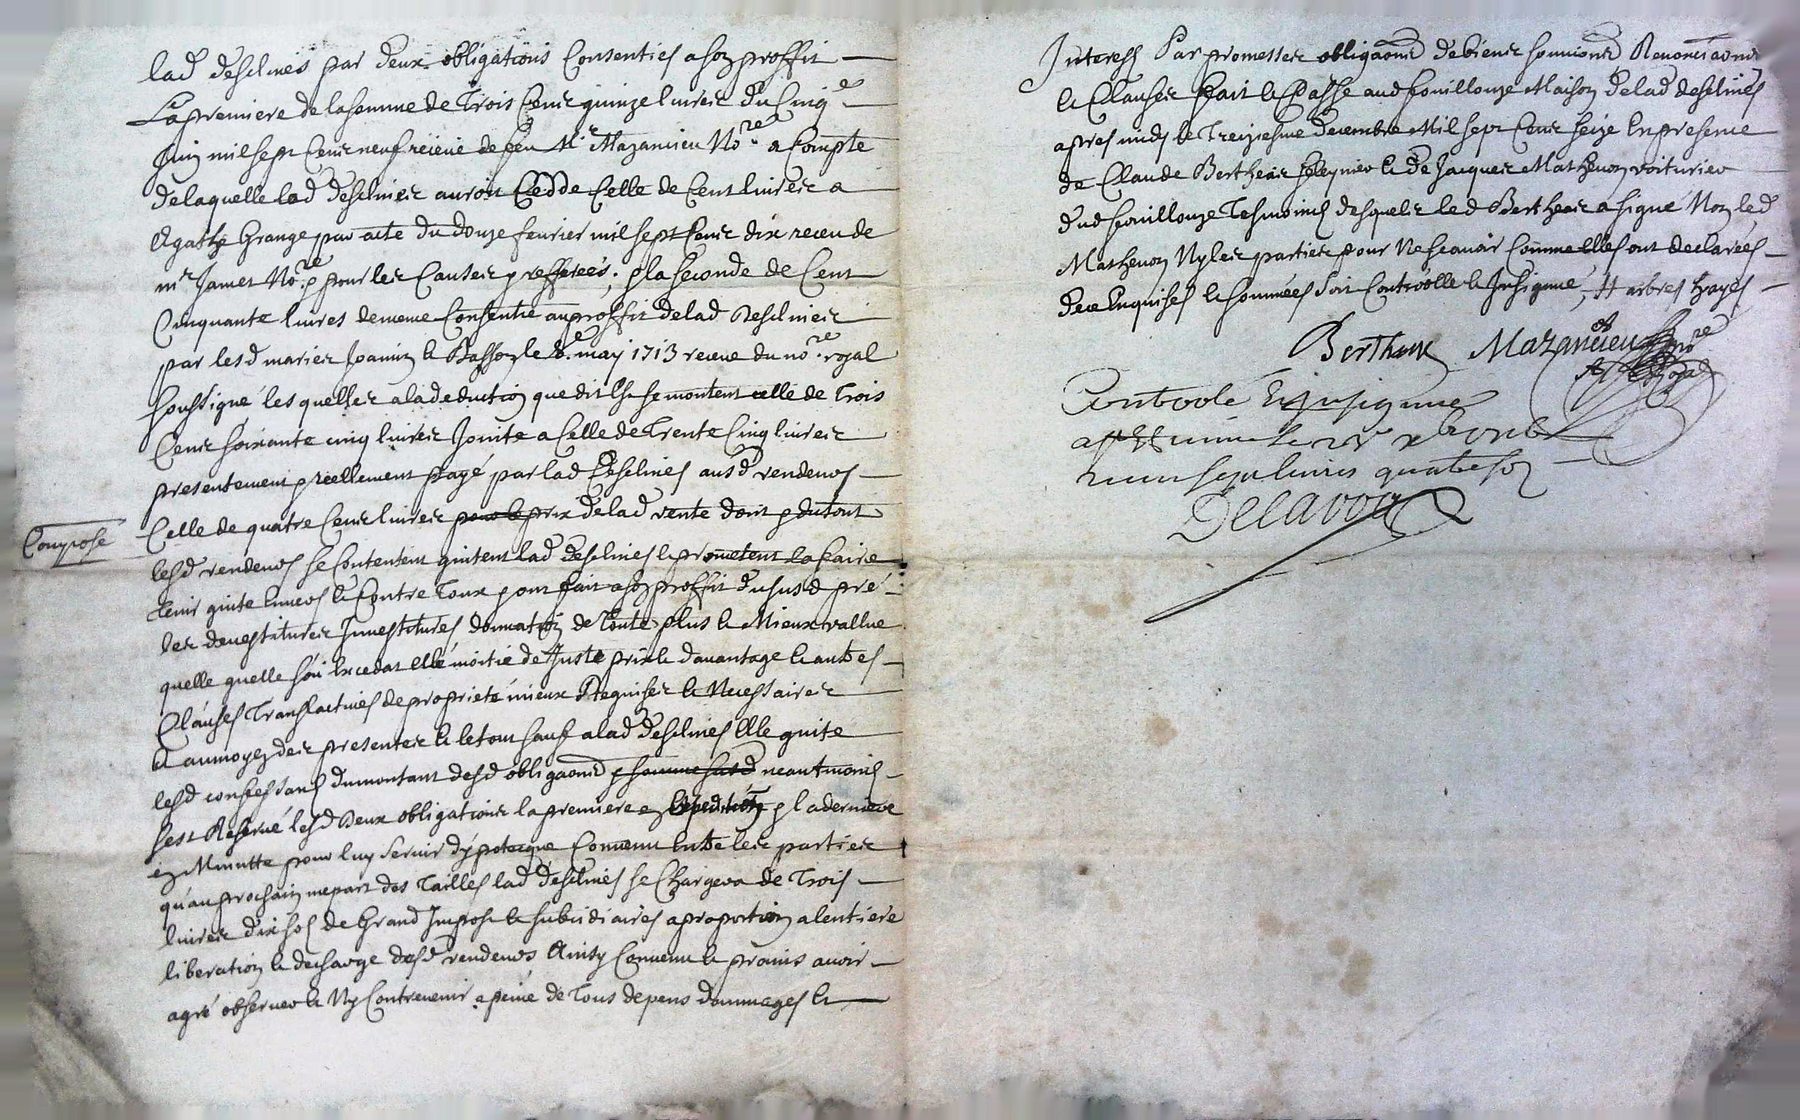 lad desclines par deux obligations Consenties a son proffit
La premiere de la somme de Trois Cents quinze livres du Cinqe
Juin mil sept Cents neuf receue de feu Mr Mazancieu Nore a Compte
de laquelle lad desclines auroit Cedde Celle de Cent livres a
Agathe Grange par acte du douze fevrier mil sept Cents dix receu de
mr Jamet Nore pour les Causes y refferées, & la seconde de Cent
Cinquante livres de meme Consentie au proffit de lad desclines
par lesd maries Joanin & Basson le 8e may 1713 receue du nore royal
soussigné lesquelles a la deduction que dit Est se montent celle de Trois
Cents soixante cinq livres Jointe a Celle de Trente Cinq livres
presentement & réellement payé par lad desclines ausd vendeurs
Compose
Celle de quatre Cents livres pour le prix de lad vente dont & du tout
lesd vendeurs se Contentent quitent lad desclines & prometent la faire
tenir quite Envers & Contre Tous & ont fait a son proffit du susd pré
les devestitures Investitures donnation de Toute plus & Mieux vallue
quelle quelle soit Excedat Elle moitié de Juste prix & davantage & autres
Clauses Translactives de proprieté mieux Requises & Necessaires
& au moyen des presentes & le tout sauf a lad desclines Elle quite
lesd confessants du montant desd obligaons neantmoins
sest Reservé lesd deux obligations la premiere en Expedition & la derniere
en Minutte pour luy servir dypoteque Convenu Entre les parties
quau prochain mepart des Tailles lad desclines se Chargera de Trois
livres dix sols de Grand Impost & subsidiaires a proportion a lentiere
liberation & decharge desd vendeurs Ainsy Convenu & promis avoir
agré observer & Ny Contrevenir a peine de Tous depens dommages &
Interests Par promesses obligaons de biens soumions Renonciaons
& Clauses Fait & Passé aud fouillouze Maison de lad desclines
apres midy le Treiziesme decembre Mil sept Cents seize En presence
de Claude Berthear & de Jacques Mathevon voiturier
dud fouillouze Tesmoins desquels led Berthear a signé Non led
Mathevon Ny les parties pour Ne scavoir Comme Elles ont declarées
de ce Enquises & sommées soit Controollé & Insignué, # arbres hayes
Berthear Mazancieu nore
Royal
Controolé & insignué
a St Etienne le
receu sept livres quatre sols
Delavoy